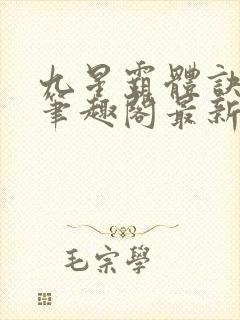 九星霸體訣
筆趣閣最新
毛宗學